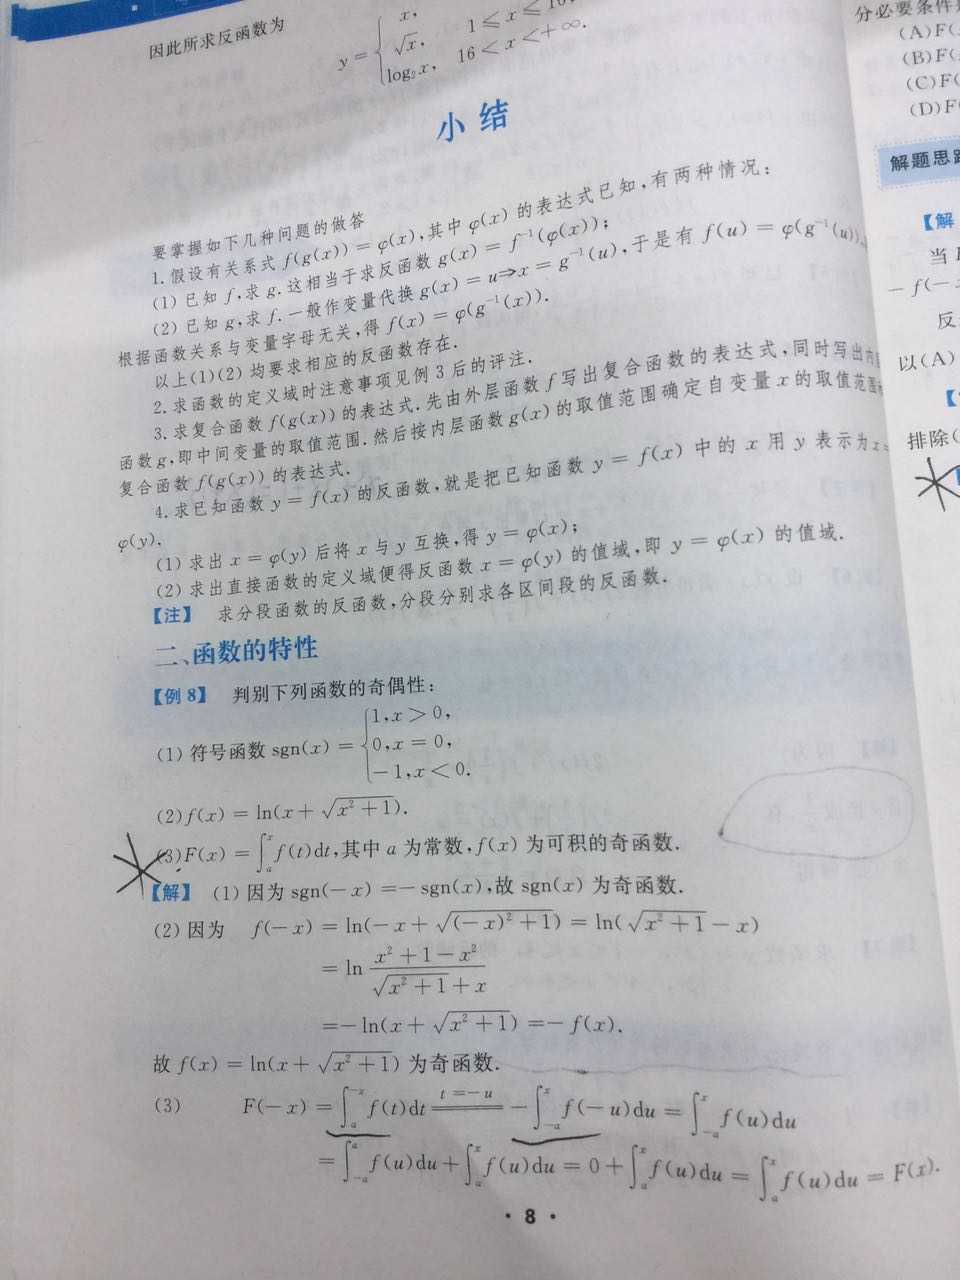 因此所求反函数为
y = { x,
√x, 1 ≤ x ≤ 16,
log₂x, 16 < x < +∞.
小 结
要掌握如下几种问题的做答
1.假设有关系式 f(g(x)) = φ(x),其中 φ(x) 的表达式已知,有两种情况:
(1) 已知 f,求 g.这相当于求反函数 g(x) = f⁻¹(φ(x));
(2) 已知 g,求 f.一般作变量代换 g(x) = u⇒x = g⁻¹(u),于是有 f(u) = φ(g⁻¹(u)),
根据函数关系与变量字母无关,得 f(x) = φ(g⁻¹(x)).
以上(1)(2) 均要求相应的反函数存在.
2.求函数的定义域时注意事项见例 3 后的评注.
3.求复合函数 f(g(x)) 的表达式.先由外层函数 f 写出复合函数的表达式,同时写出内
函数 g,即中间变量的取值范围.然后按内层函数 g(x) 的取值范围确定自变量 x 的取值范围
复合函数 f(g(x)) 的表达式.
4.求已知函数 y = f(x) 的反函数,就是把已知函数 y = f(x) 中的 x 用 y 表示为 x =
φ(y).
(1) 求出 x = φ(y) 后将 x 与 y 互换,得 y = φ(x);
(2) 求出直接函数的定义域便得反函数 x = φ(y) 的值域,即 y = φ(x) 的值域.
【注】 求分段函数的反函数,分段分别求各区间段的反函数.
二、函数的特性
【例 8】 判别下列函数的奇偶性:
(1) 符号函数 sgn(x) = { 1,x > 0,
0,x = 0,
−1,x < 0.
(2) f(x) = ln(x + √(x² + 1)).
(3) F(x) = ∫ₐˣ f(t)dt,其中 a 为常数,f(x) 为可积的奇函数.
【解】 (1) 因为 sgn(−x) =− sgn(x),故 sgn(x) 为奇函数.
(2) 因为 f(−x) = ln(−x + √((−x)² + 1)) = ln(√(x² + 1) − x)
= ln (x² + 1 − x²)/(√(x² + 1) + x)
=− ln(x + √(x² + 1)) =− f(x).
故 f(x) = ln(x + √(x² + 1)) 为奇函数.
(3) F(−x) = ∫ₐ⁻ˣ f(t)dt ==(t =− u)== −∫₋ₐˣ f(−u)du = ∫₋ₐˣ f(u)du
= ∫₋ₐᵃ f(u)du + ∫ₐˣ f(u)du = 0 + ∫ₐˣ f(u)du = ∫ₐˣ f(u)du = F(x).
· 8 ·
分必要条件
(A)F(
(B)F(
(C)F(
(D)F(
解题思路
【解】
当
− f(−
反
以(A)
排除(